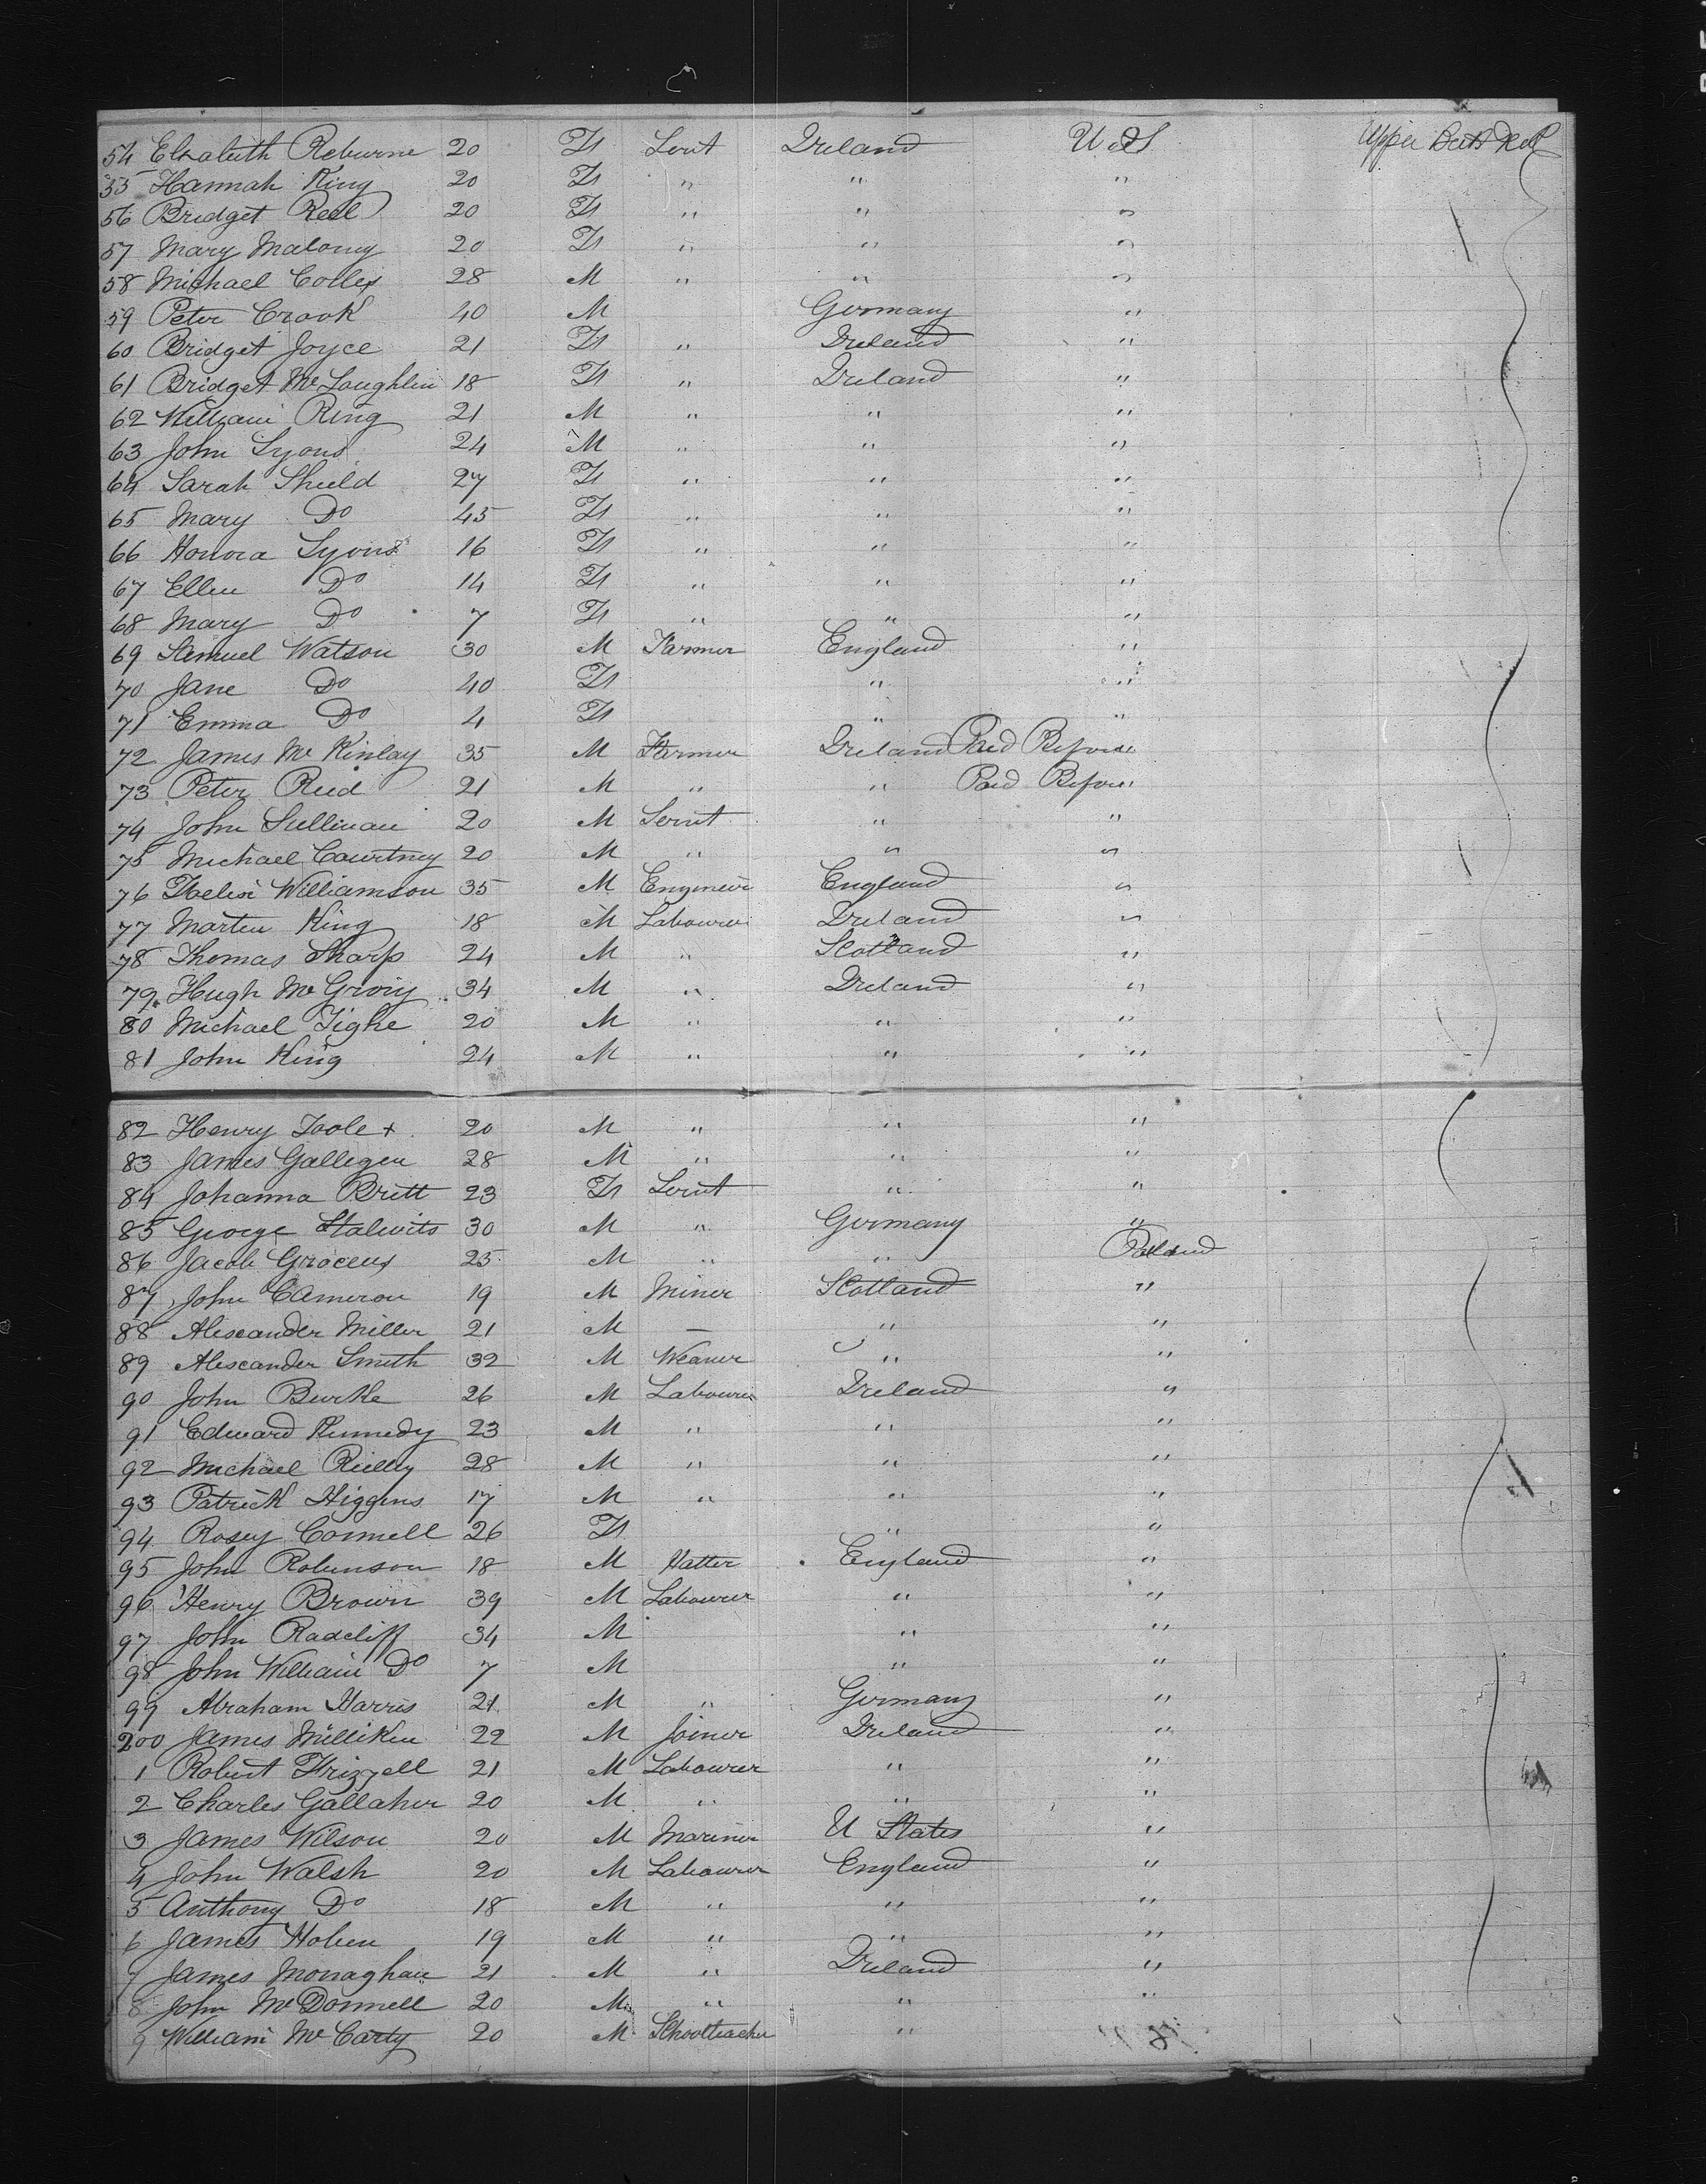 54 Elzabeth Reburne 20 F Servt Ireland U S Upper Betw Deck
55 Hannah King 20 F " " "
56 Bridget Reel 20 F " " "
57 Mary Malony 20 F " " "
58 Michael 28 M " " "
59 Peter Crook 40 M Germany "
60 Bridget Joyce 21 F " Ireland "
61 Bridget McLoughlin 18 F " Ireland "
62 William Ring 21 M " " "
63 John Lyons 24 M " " "
64 Sarah Shield 27 F " " "
65 Mary Do 45 F " " "
66 Honora Lyons 16 F " " "
67 Ellen Do 14 F " " "
68 Mary Do 7 F " " "
69 Samuel Watson 30 M Farmer England "
70 Jane Do 40 F " "
71 Emma Do 4 F " "
72 James McKinlay 35 M Farmer Ireland Paid Before
73 Peter Reid 21 M " " Paid Before
74 John Sullivan 20 M Servt " "
75 Michael Courtney 20 M " " "
76 Williamson 35 M Engineer England "
77 Martin King 18 M Labourer Ireland "
78 Thomas Sharp 24 M " Scotland "
79 Hugh 34 M " Ireland "
80 Michael Tighe 20 M " " "
81 John King 24 M " " "
82 Henry Toole + 20 M " " "
83 James Galligen 28 M " " "
84 Johanna Britt 23 F Servt " "
85 George 30 M " Germany "
86 Jacob 25 M " "
87 John Cameron 19 M Miner Scotland "
88 Alexander Miller 21 M — " "
89 Alexander Smith 32 M Weaver " "
90 John Burke 26 M Labourer Ireland "
91 Edward Kennedy 23 M " " "
92 Michael Rielly 28 M " " "
93 Patrick Higgins 17 M " " "
94 Rosey Connell 26 F " "
95 John Robinson 18 M Hatter England "
96 Henry Brown 39 M Labourer " "
97 John Radcliff 34 M " "
98 John William Do 7 M " "
99 Abraham Harris 21 M " Germany "
200 James Milliken 22 M Joiner Ireland "
1 Robert Frizzell 21 M Labourer " "
2 Charles Gallaher 20 M " " "
3 James Wilson 20 M Mariner U States "
4 John Walsh 20 M Labourer England "
5 Anthony Do 18 M " " "
6 James Hoben 19 M " " "
7 James Monaghan 21 M " Ireland "
8 John McDonnell 20 M " " "
9 William McCarty 20 M Schoolteacher "